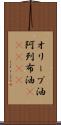 オリーブ油
阿列布油